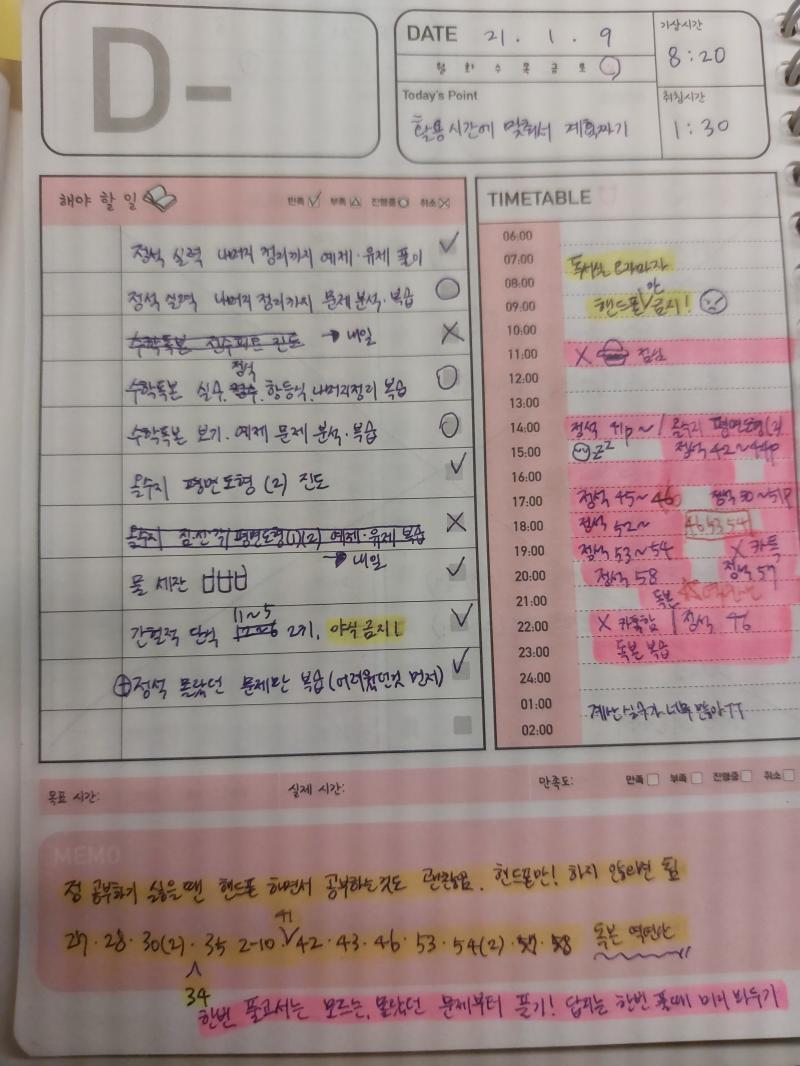 D-
DATE 21. 1. 9
월 화 수 목 금 토
기상시간
8:20
Today's Point
활용시간에 맞춰서 계획짜기
취침시간
1:30
해야 할 일
만족 부족 진행중 취소
정석 실력 나머지 정리까지 예제·유제 풀이
정석 실력 나머지 정리까지 문제 분석·복습
수학독본 진도 → 내일
정석
수학독본 실수, 항등식, 나머지정리 복습
수학독본 보기·예제 문제 분석·복습
올수지 평면도형 (2) 진도
올수지 평면도형(1)(2) 예제·유제 복습
→ 내일
물 세잔
11~5
간헐적 단식 2기, 야식금지!
⊕정석 몰랐던 문제만 복습 (어려웠던것 먼저)
TIMETABLE
06:00
07:00
독서실 오자마자
08:00
안
09:00
핸드폰 금지!
10:00
11:00 X 점심
12:00
13:00
14:00 정석 41p~ / 올수지 평면도형(2)
15:00 정석 42~44p
16:00
17:00 정석 45~46 정석 50~51p
18:00 정석 52~ 46 53 54
19:00 정석 53~54 X 카톡
20:00 정석 58 정석 57
21:00 독본
22:00 X 카톡함 정석 46
23:00 독본 복습
24:00
01:00 계산실수가 너무 많아 ㅠㅠ
02:00
목표 시간: 실제 시간: 만족도: 만족 부족 진행중 취소
MEMO
정 공부하기 싫을땐 핸드폰 하면서 공부하는것도 괜찮음. 핸드폰만! 하지 않으면 됨
41
27·28·30(2)·35 2-10·42·43·46·53·54(2)·57·58 독본
34
한번 풀고서는 모르는, 몰랐던 문제부터 풀기! 답지는 한번 풀때 미리 봐두기